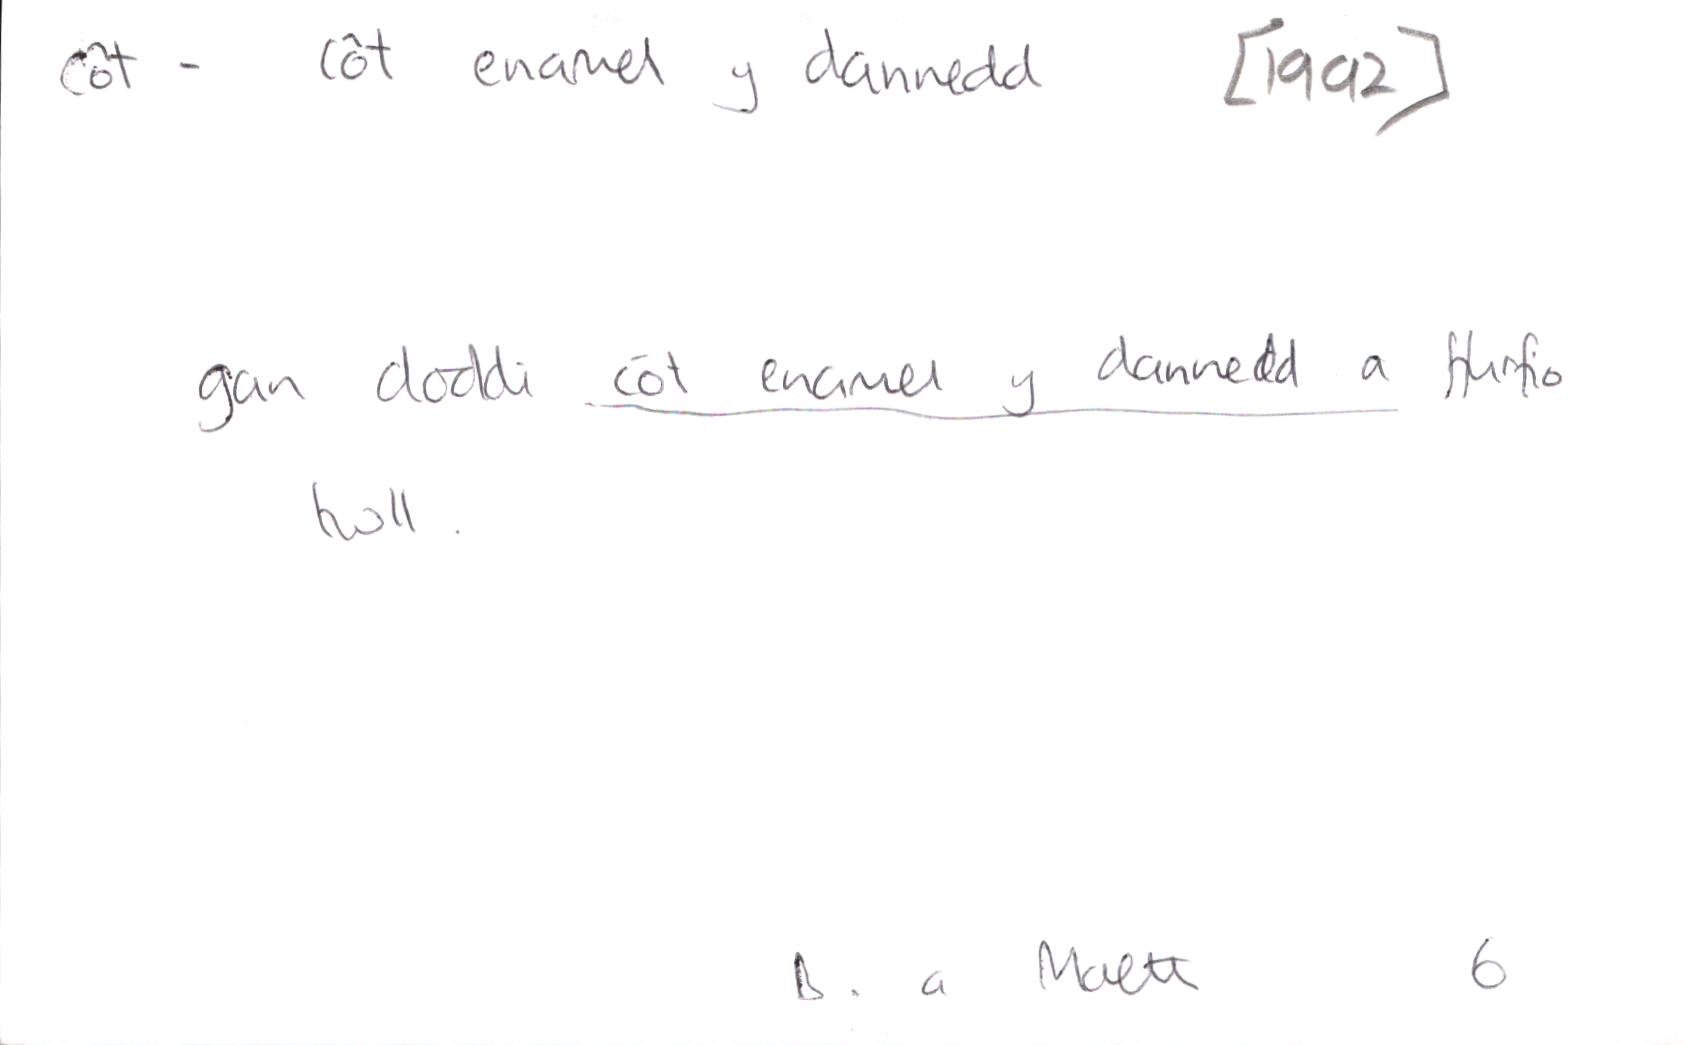 côt - côt enamel y dannedd [1992]
gan doddi côt enamel y dannedd a ffurfio
twll.
B. a Maeth 6